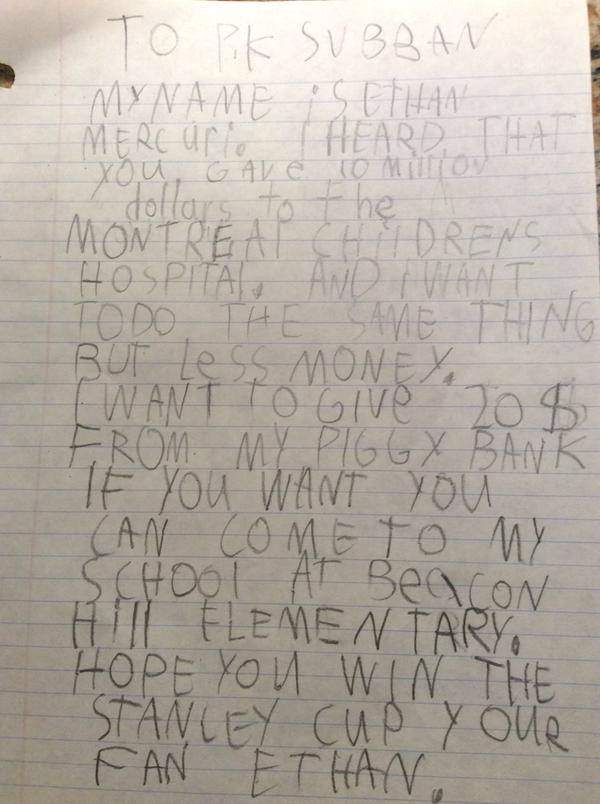 TO P.K SUBBAN
MY NAME iS ETHAN
MERCURi. I HEARD THAT
YOU GAVe 10 Million
dollars to the
MONTREAl CHIlDRENS
HOSPITAl. AND i WANT
TO DO THE SAME THING
BUT LeSS MONEY.
I WANT TO GIVe 20$
FROM MY PIGGY BANK
IF YOU WANT YOU
CAN COME TO MY
SCHOOl AT BeaCON
Hill ELEMENTARY.
HOPE YOU WIN THE
STANLEY CUP YOUR
FAN ETHAN.